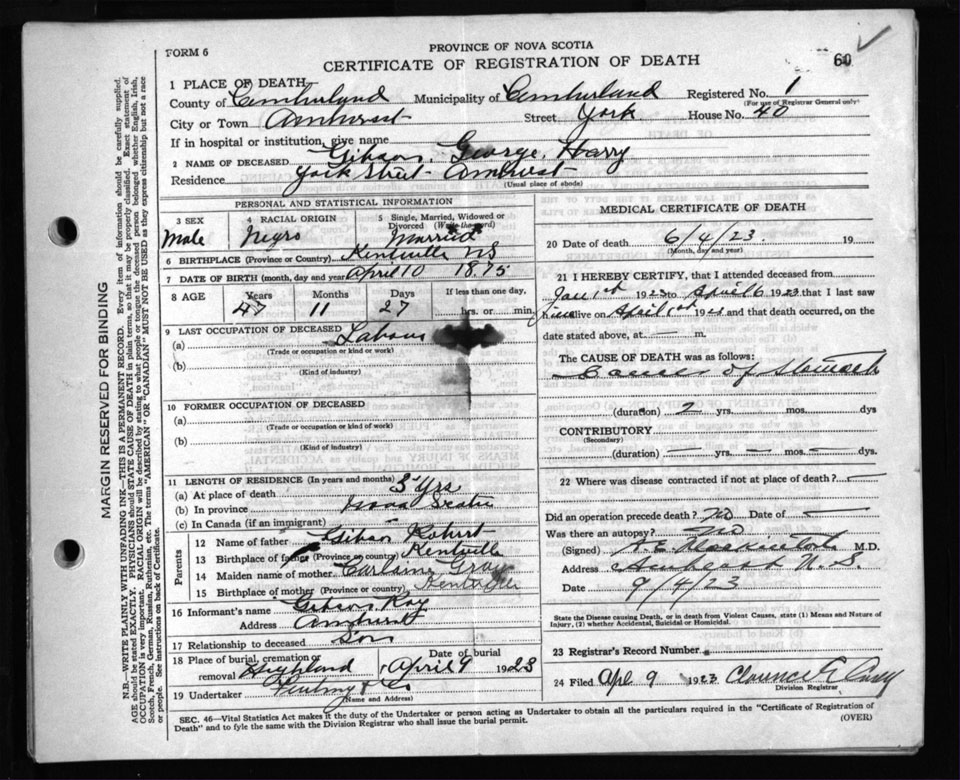 FORM 6
PROVINCE OF NOVA SCOTIA
CERTIFICATE OF REGISTRATION OF DEATH
60
1 PLACE OF DEATH—
County of Cumberland Municipality of Cumberland Registered No. 1
(For use of Registrar General only)
City or Town Amherst Street, York House No. 40
If in hospital or institution, give name
2 NAME OF DECEASED Gibson, George, Harry
Residence York Street - Amherst
(Usual place of abode)
PERSONAL AND STATISTICAL INFORMATION
3 SEX Male
4 RACIAL ORIGIN Negro
5 Single, Married, Widowed or Divorced (Write the word) Married
6 BIRTHPLACE (Province or Country) Kentville NS
7 DATE OF BIRTH (month, day and year) April 10 1875
8 AGE Years 47 Months 11 Days 27 If less than one day, hrs. or min.
9 LAST OCCUPATION OF DECEASED
(a) Labour
(Trade or occupation or kind or work)
(b)
(Kind of industry)
10 FORMER OCCUPATION OF DECEASED
(a)
(Trade or occupation or kind or work)
(b)
(Kind of industry)
11 LENGTH OF RESIDENCE (In years and months)
(a) At place of death 3 yrs
(b) In province Nova Scotia
(c) In Canada (if an immigrant)
Parents
12 Name of father Gibson Robert
13 Birthplace of father (Province or country) Kentville
14 Maiden name of mother Gray
15 Birthplace of mother (Province or country) Kentville
16 Informant's name Gibson Roy
Address Amherst
17 Relationship to deceased Son
18 Place of burial, cremation or removal Highland Date of burial April 9 1923
19 Undertaker
(Name and Address)
MEDICAL CERTIFICATE OF DEATH
20 Date of death 6/4/23. 19
(Month, day and year)
21 I HEREBY CERTIFY, that I attended deceased from
Jan 1st 1923 to April 6 1923 that I last saw
him alive on April 1st 1923 and that death occurred, on the
date stated above, at — m.
The CAUSE OF DEATH was as follows:
Cancer of Stomach
(duration) 2 yrs. mos. dys
CONTRIBUTORY —
(Secondary)
(duration) — yrs. — mos. — dys
22 Where was disease contracted if not at place of death? —
Did an operation precede death? No Date of —
Was there an autopsy? No
(Signed) M.D.
Address Amherst N.S.
Date 9/4/23
State the Disease causing Death, or in death from Violent Causes, state (1) Means and Nature of Injury, (2) whether Accidental, Suicidal or Homicidal.
23 Registrar's Record Number
24 Filed Apl 9 1923 Clarence E
Division Registrar
SEC. 46—Vital Statistics Act makes it the duty of the Undertaker or person acting as Undertaker to obtain all the particulars required in the "Certificate of Registration of
Death" and to fyle the same with the Division Registrar who shall issue the burial permit.
(OVER)
MARGIN RESERVED FOR BINDING
N.B.—WRITE PLAINLY WITH UNFADING INK—THIS IS A PERMANENT RECORD. Every item of information should be carefully supplied.
AGE should be stated EXACTLY. PHYSICIANS should STATE CAUSE OF DEATH in plain terms, so that it may be properly classified. Exact statement of
OCCUPATION is very important. RACIAL ORIGIN will be described by stating to what people or tongue the deceased person belonged whether English, Irish,
Scotch, French, German, Russian, Ruthenian, etc. The terms "AMERICAN" OR "CANADIAN" MUST NOT BE USED as they express citizenship but not a race
or people. See instructions on back of Certificate.